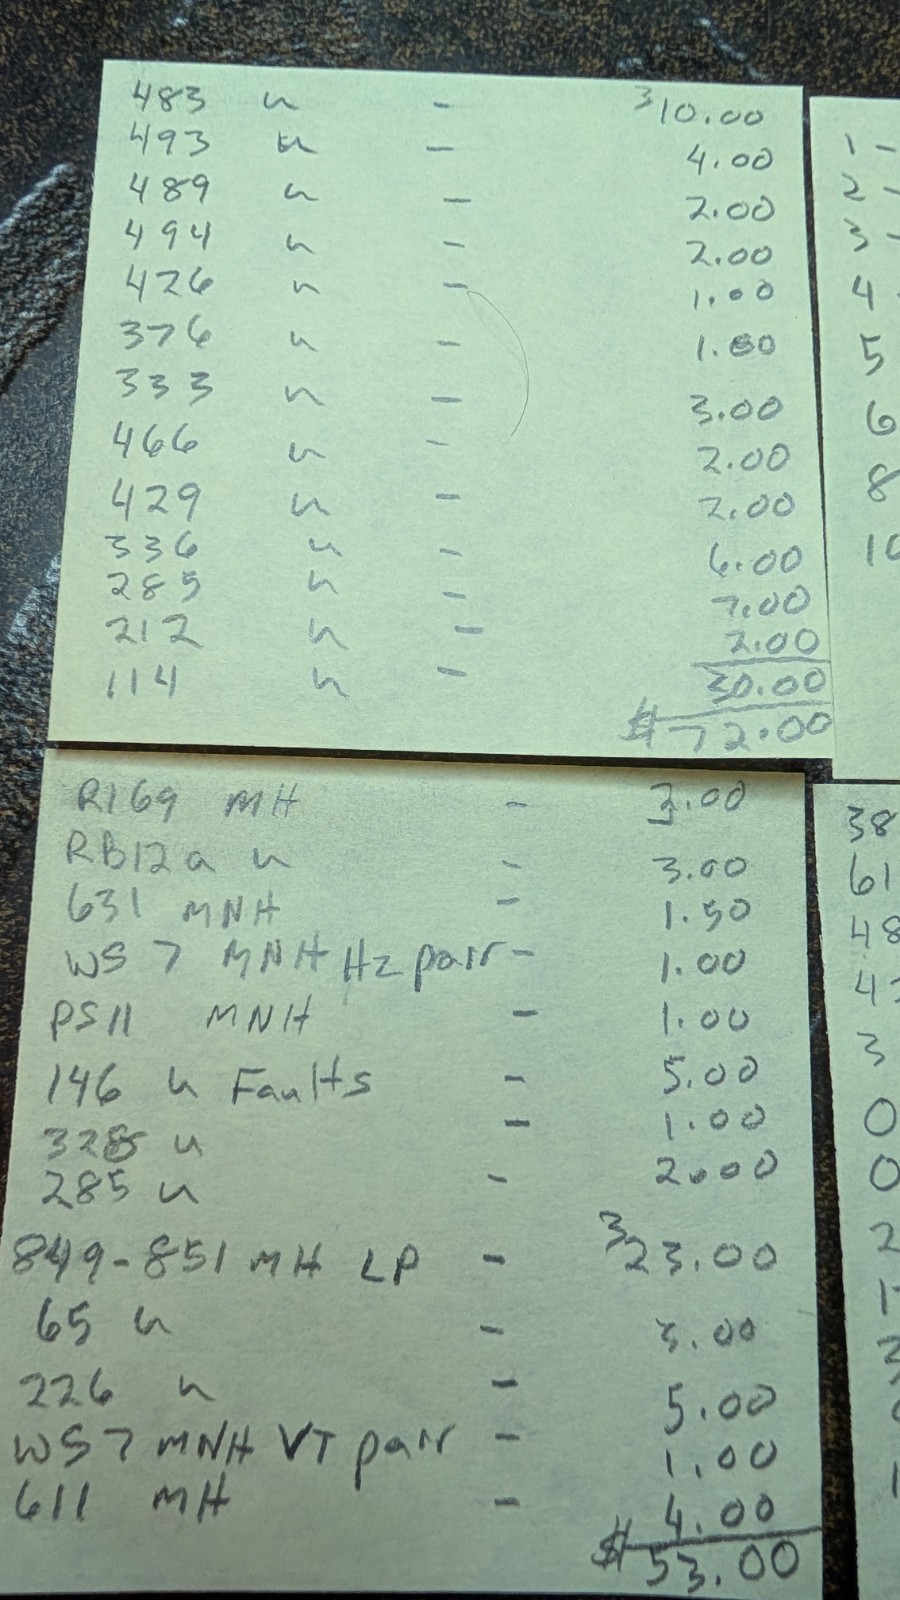 483 u - ³10.00
493 u - 4.00
489 u - 2.00
494 u - 2.00
426 u - 1.00
376 u - 1.00
333 u - 3.00
466 u - 2.00
429 u - 2.00
336 u - 6.00
285 u - 7.00
212 u - 2.00
114 u - 30.00
$72.00
R169 MH - 3.00
RB12a u - 3.00
631 MNH - 1.50
WS7 MNH Hz pair - 1.00
PS11 MNH - 1.00
146 u Faults - 5.00
328 u - 1.00
285 u - 2.00
849-851 MH LP - ³23.00
65 u - 3.00
226 u - 5.00
WS7 MNH VT pair - 1.00
611 MH - 4.00
$53.00
1 -
2 -
3 -
4
5
6
8
10
38
61
48
3
0
0
2
1